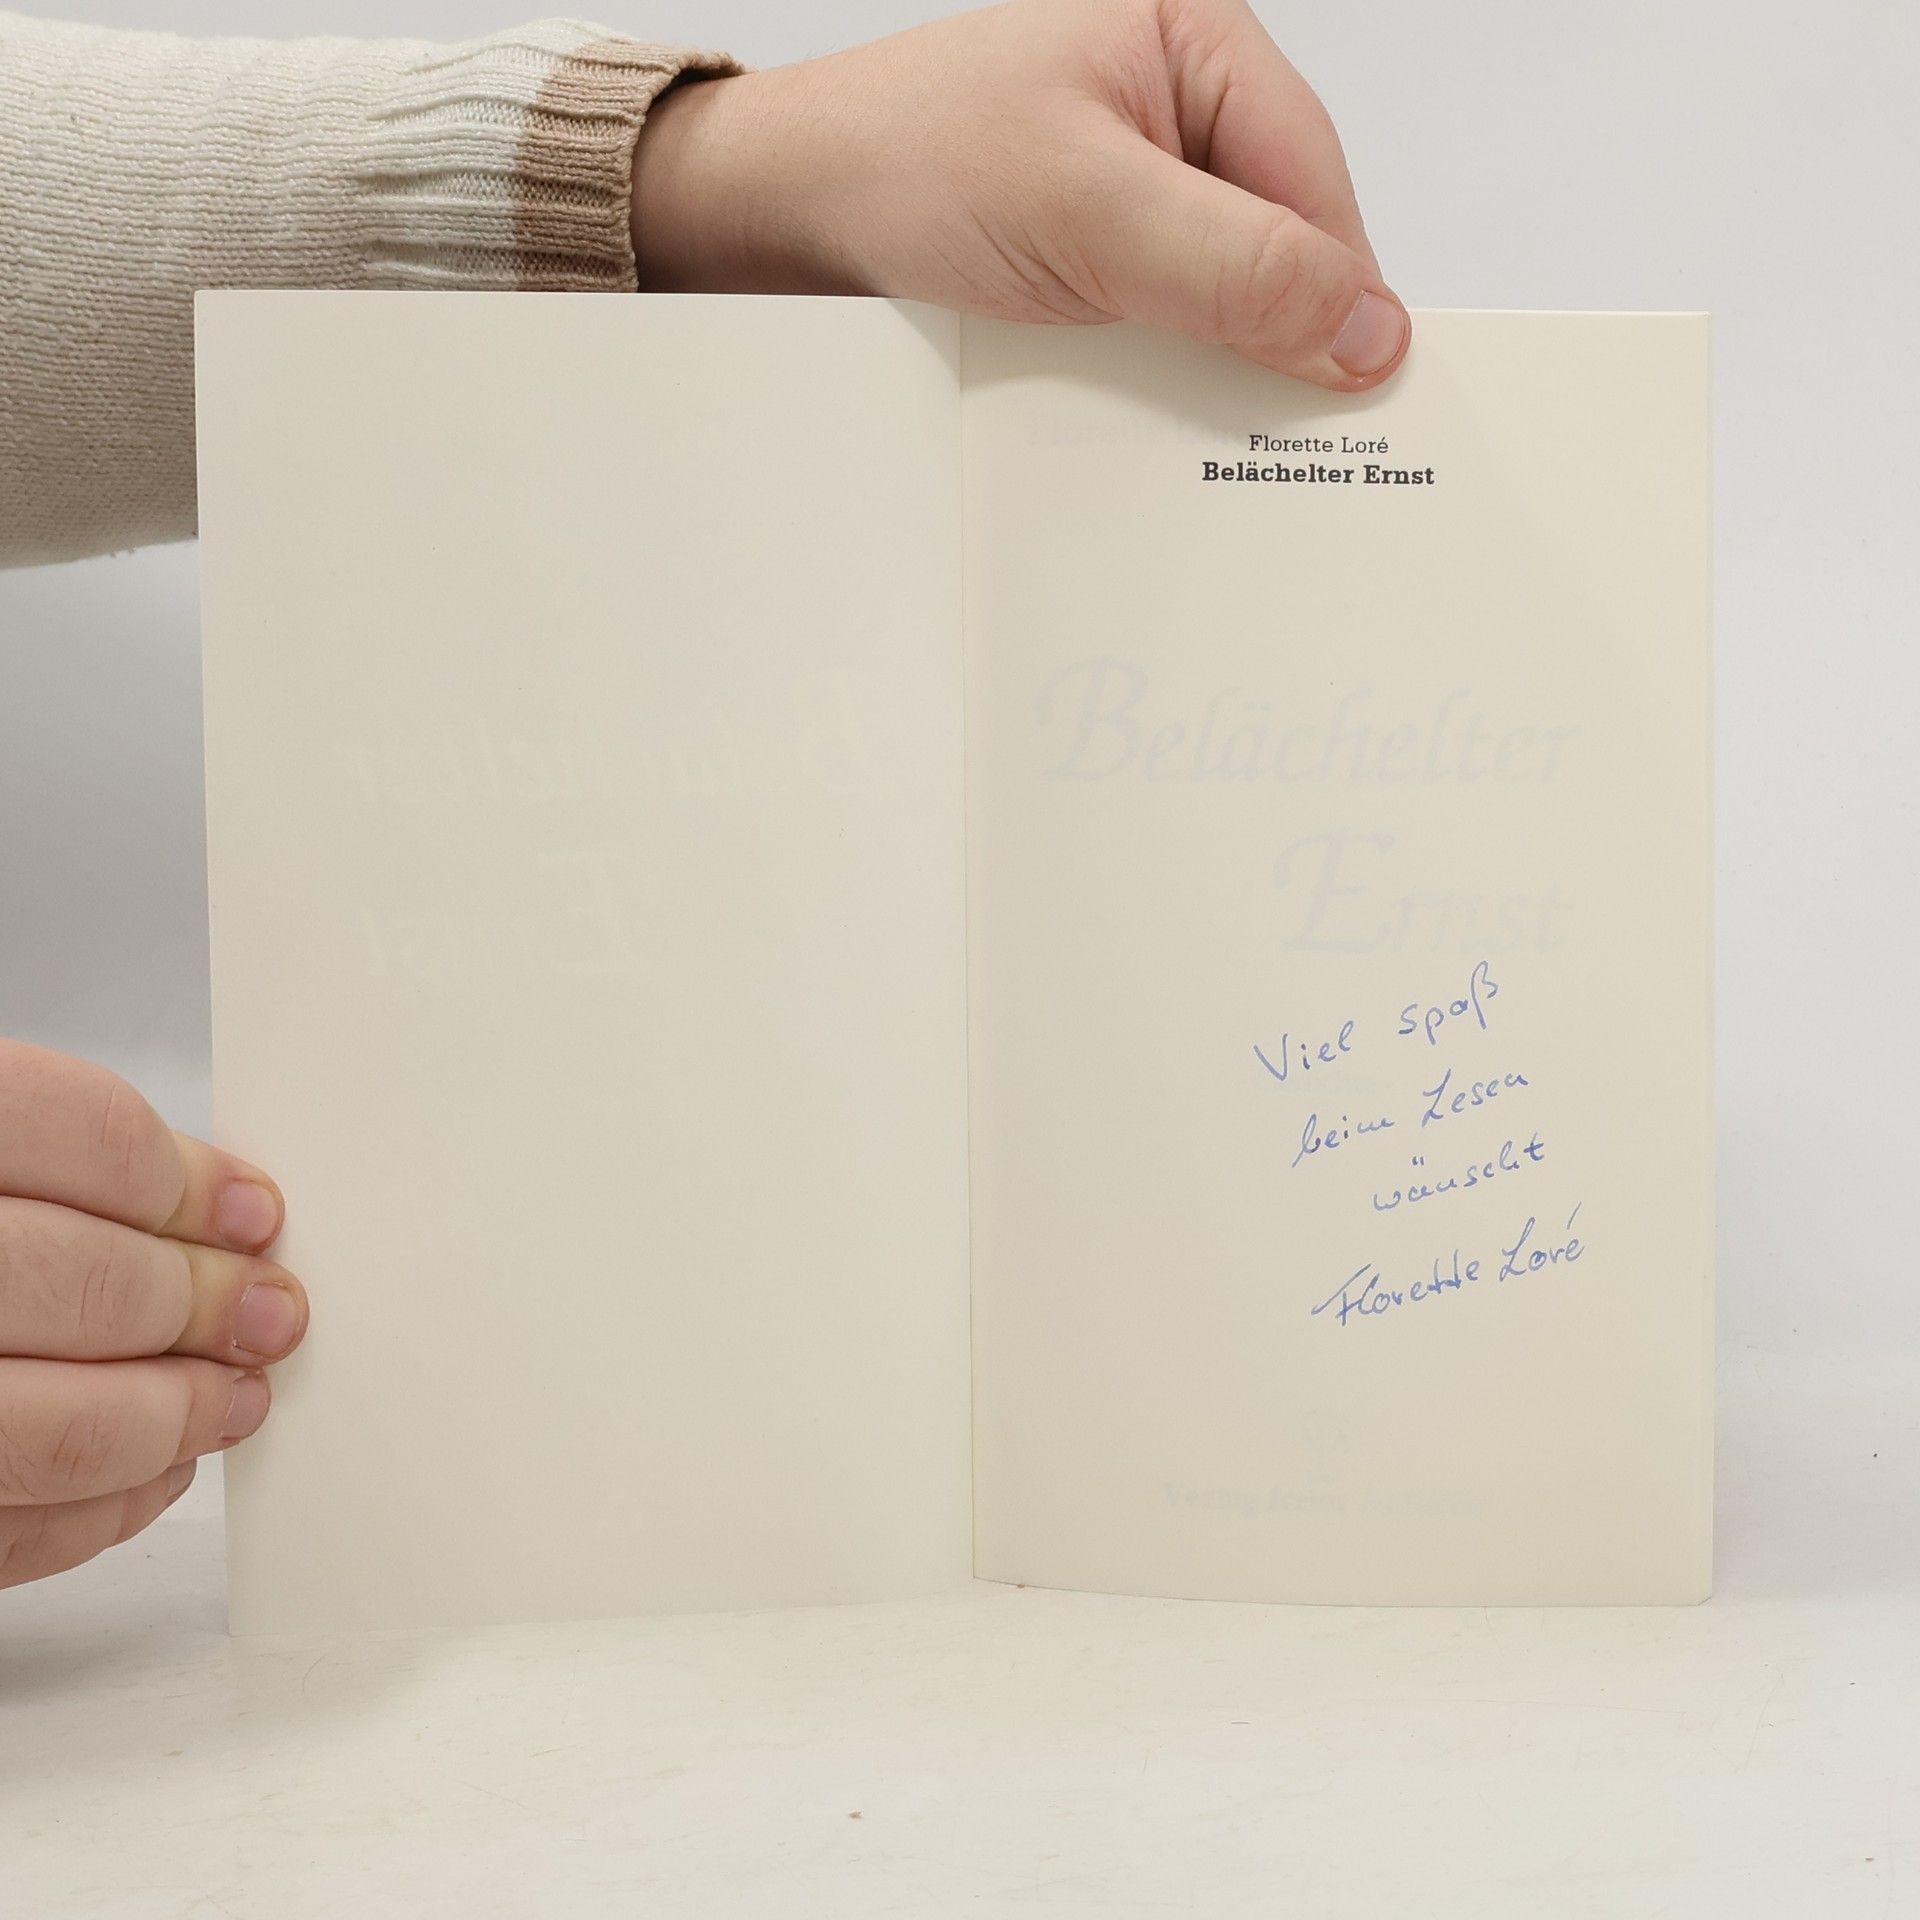 Florette Loré
Belächelter Ernst
Belächelter
Ernst
Viel Spaß
beim Lesen
wünscht
Florette Loré